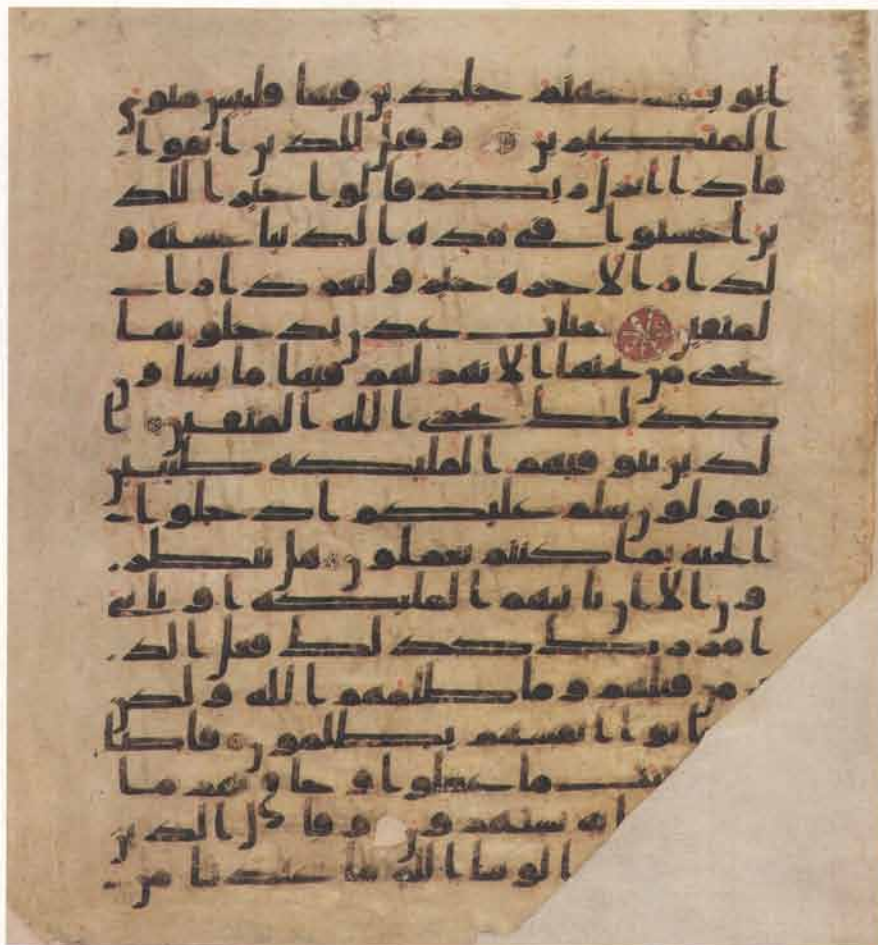 ابوب جهنم خلدين فيها فلبيس مثوى
المتكبرين وقيل للذين اتقوا
ماذا انزل ربكم قالوا خيرا للذ
ين احسنوا في هذه الدنيا حسنة و
لدار الاخرة خير ولنعم دار ا
لمتقين جنات عدن يدخلونها
تجري من تحتها الانهر لهم فيها ما يشاون
كذلك يجزي الله المتقين ا
لذين تتوفيهم الملئكة طيبين
يقولون سلم عليكم ادخلوا
الجنة بما كنتم تعملون هل ينظر
ون الا ان تاتيهم الملئكة او ياتي
امر ربك كذلك فعل الذ
ين من قبلهم وما ظلمهم الله ولكن
كانوا انفسهم يظلمون فاصا
ما عملوا وحاق بهم ما
به يستهزون وقال الذين
ا لو شا الله ما عبدنا من